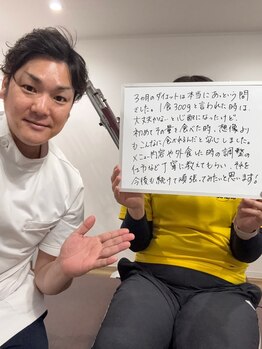 3ヵ月のダイエットは本当にあっという間
でした。1食300gと言われた時は、
大丈夫かな…と心配になったけど
初めてその量を食べた時、想像より
もこんなに食べれるんだと安心しました。
メニュー内容や外食した時の調整の
仕方など丁寧に教えてもらい、
今後も続けて頑張ってみたいと思います!